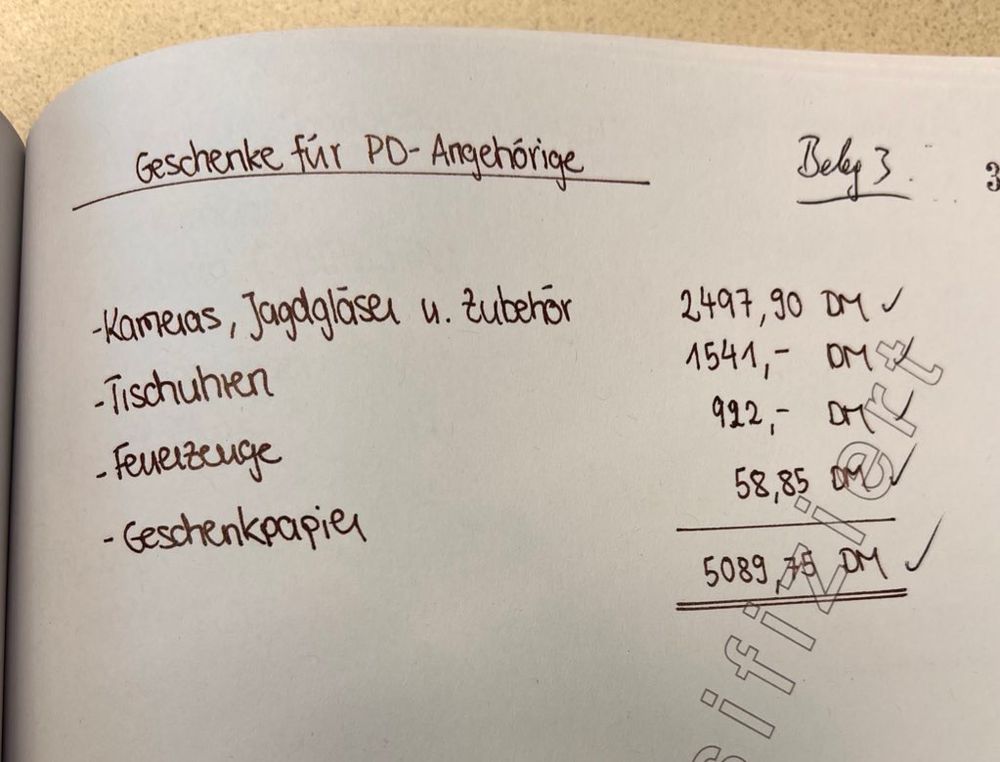 Geschenke für PD-Angehörige Beleg 3. 3
-Kameras, Jagdgläser u. Zubehör 2497,90 DM ✓
-Tischuhren 1541,- DM ✓
-Feuerzeuge 992,- DM ✓
-Geschenkpapier 58,85 DM ✓
5089,75 DM ✓
sifiziert